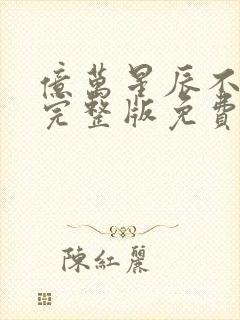 億萬星辰不
完整版免費
陳紅麗